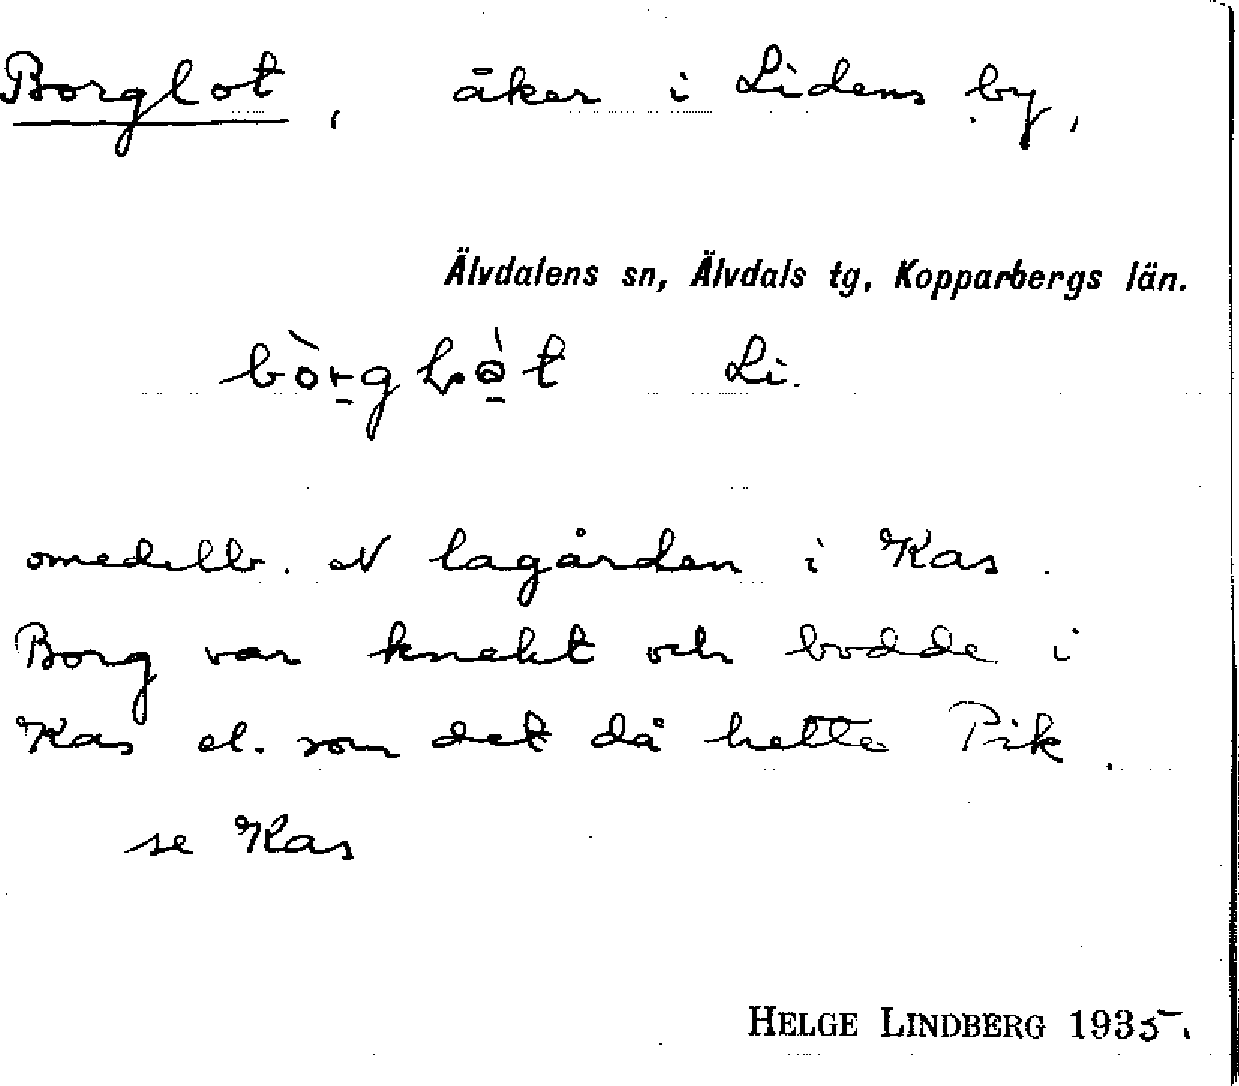 Borglot, åker i Lidens by,
Älvdalens sn, Älvdals tg, Kopparbergs län.
Li.
omedelb. N lagården i Kas.
Borg var knekt och bodde i
Kas el. som det då hette Pik.
se Kas
HELGE LINDBERG 1935.